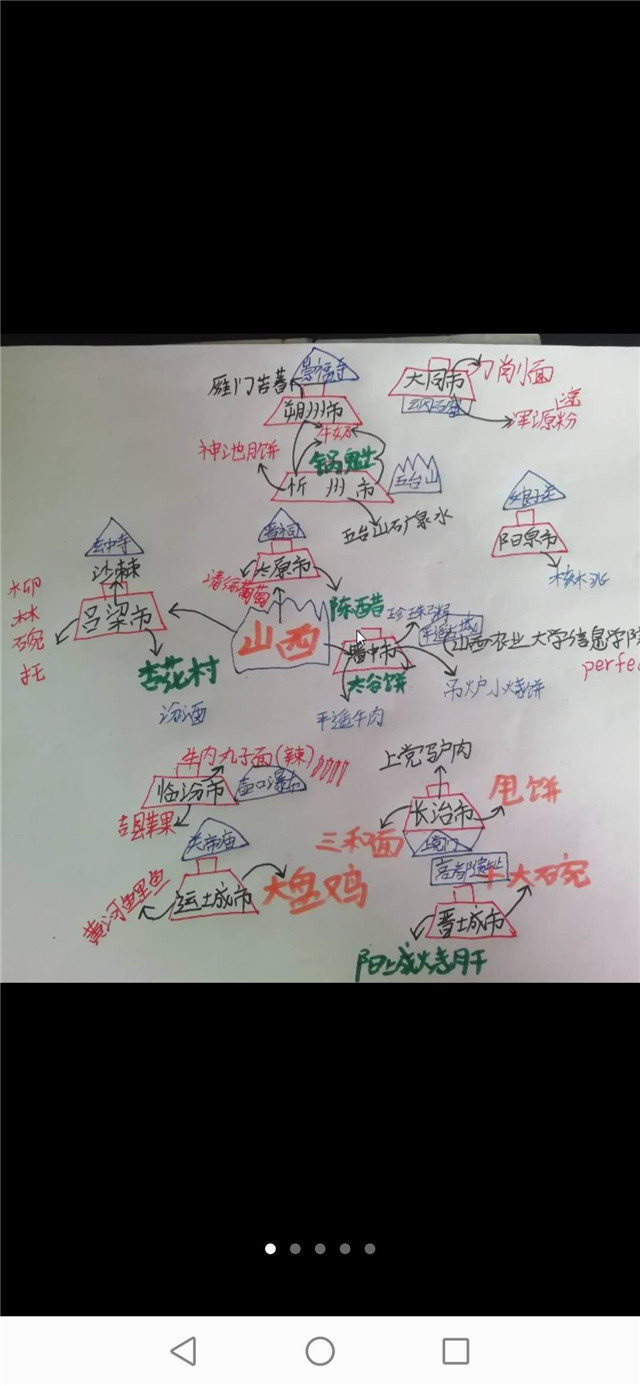 崇福寺
雁门苦荞
朔州市
大同市
刀削面
云冈石窟
浑源凉粉
牛奶
锅魁
神池月饼
忻州市
五台山
五台山矿泉水
娘子关
阳泉市
核桃
晋祠
太原市
清徐葡萄
陈醋
玄中寺
沙棘
吕梁市
柳林碗托
杏花村
汾酒
山西
珍珠
平遥古城
晋中市
山西农业大学信息学院
perfec
太谷饼
吊炉小烧饼
平遥牛肉
牛肉丸子面(辣)
临汾市
壶口瀑布
吉县苹果
上党驴肉
长治市
甩饼
三和面
上党门
关帝庙
运城市
大盘鸡
黄河鲤鱼
高都遗址
十大碗
晋城市
阳城烧肝